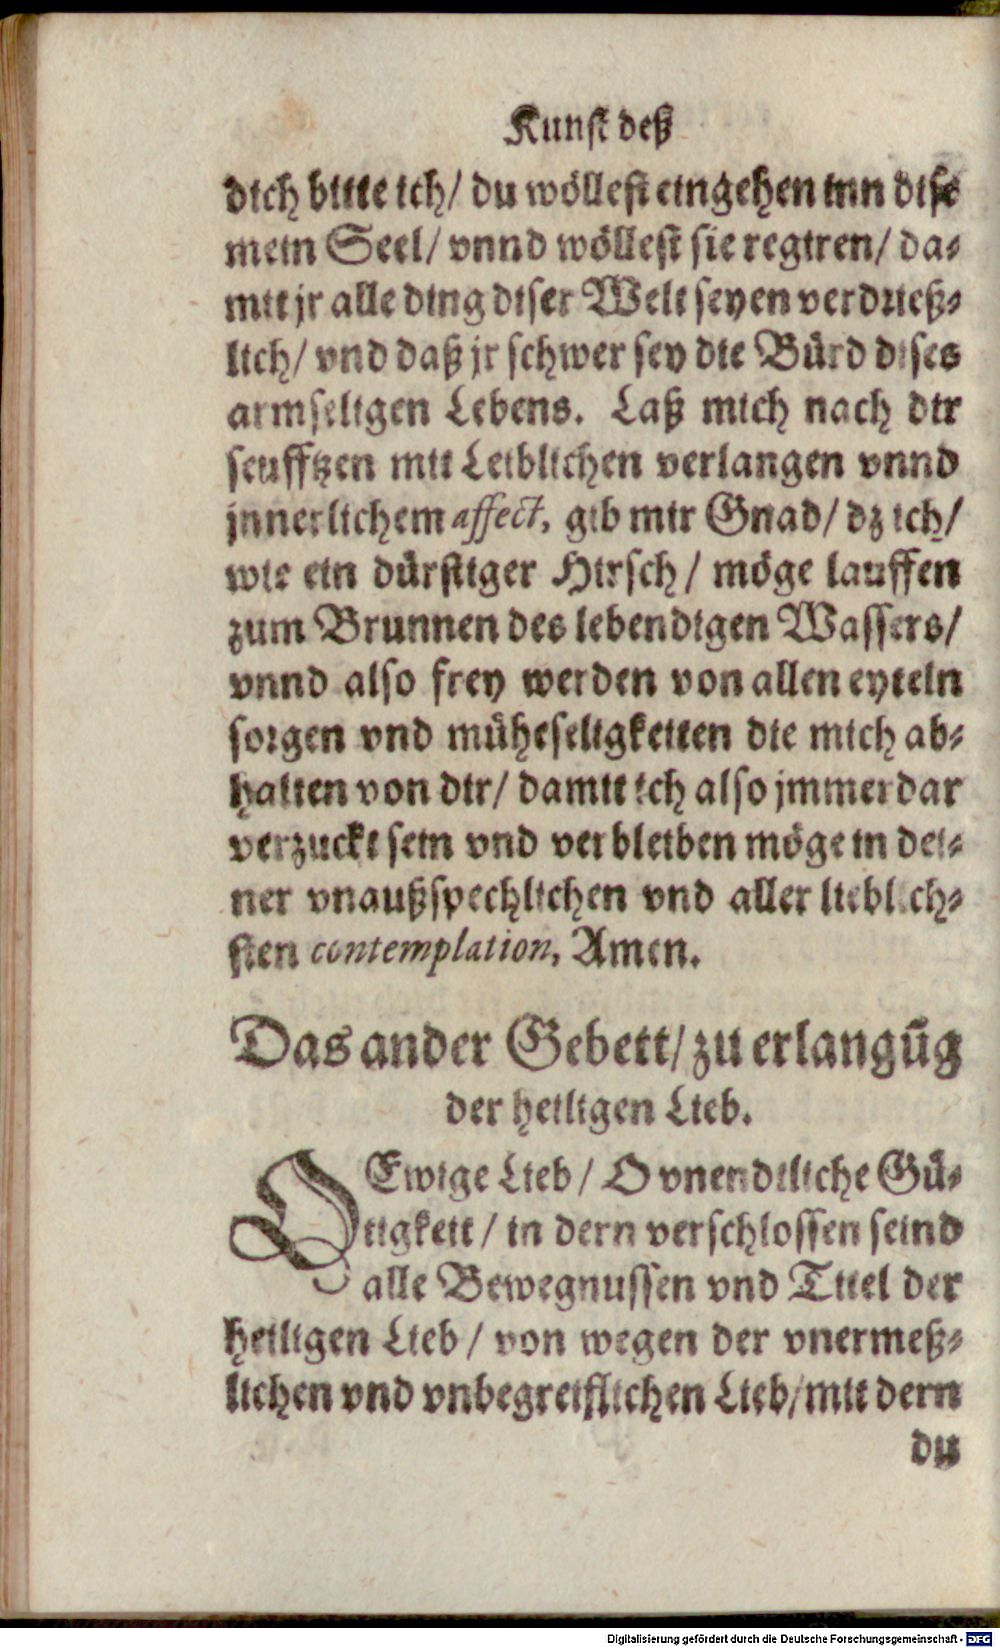 Kunst deß
dich bitte ich/ du wöllest eingehen inn dise
mein Seel/ vnnd wöllest sie regiren/ da-
mit jr alle ding diser Welt seyen verdrieß-
lich/ vnd daß jr schwer sey die Bürd dises
armseligen Lebens. Laß mich nach dir
seufftzen mit Leiblichen verlangen vnnd
jnnerlichem affect, gib mir Gnad/ dz ich/
wie ein dürstiger Hirsch/ möge lauffen
zum Brunnen des lebendigen Wassers/
vnnd also frey werden von allen eyteln
sorgen vnd müheseligkeiten die mich ab-
halten von dir/ damit ich also jmmerdar
verzuckt sein vnd verbleiben möge in dei-
ner vnaußspechlichen vnd aller lieblich-
sten contemplation, Amen.
Das ander Gebett/ zu erlangūg
der heiligen Lieb.
O Ewige Lieb/ O vnendtliche Gü-
tigkeit/ in dern verschlossen seind
alle Bewegnussen vnd Titel der
heiligen Lieb/ von wegen der vnermeß-
lichen vnd vnbegreiflichen Lieb/ mit dern
du
Digitalisierung gefördert durch die Deutsche Forschungsgemeinschaft - DFG